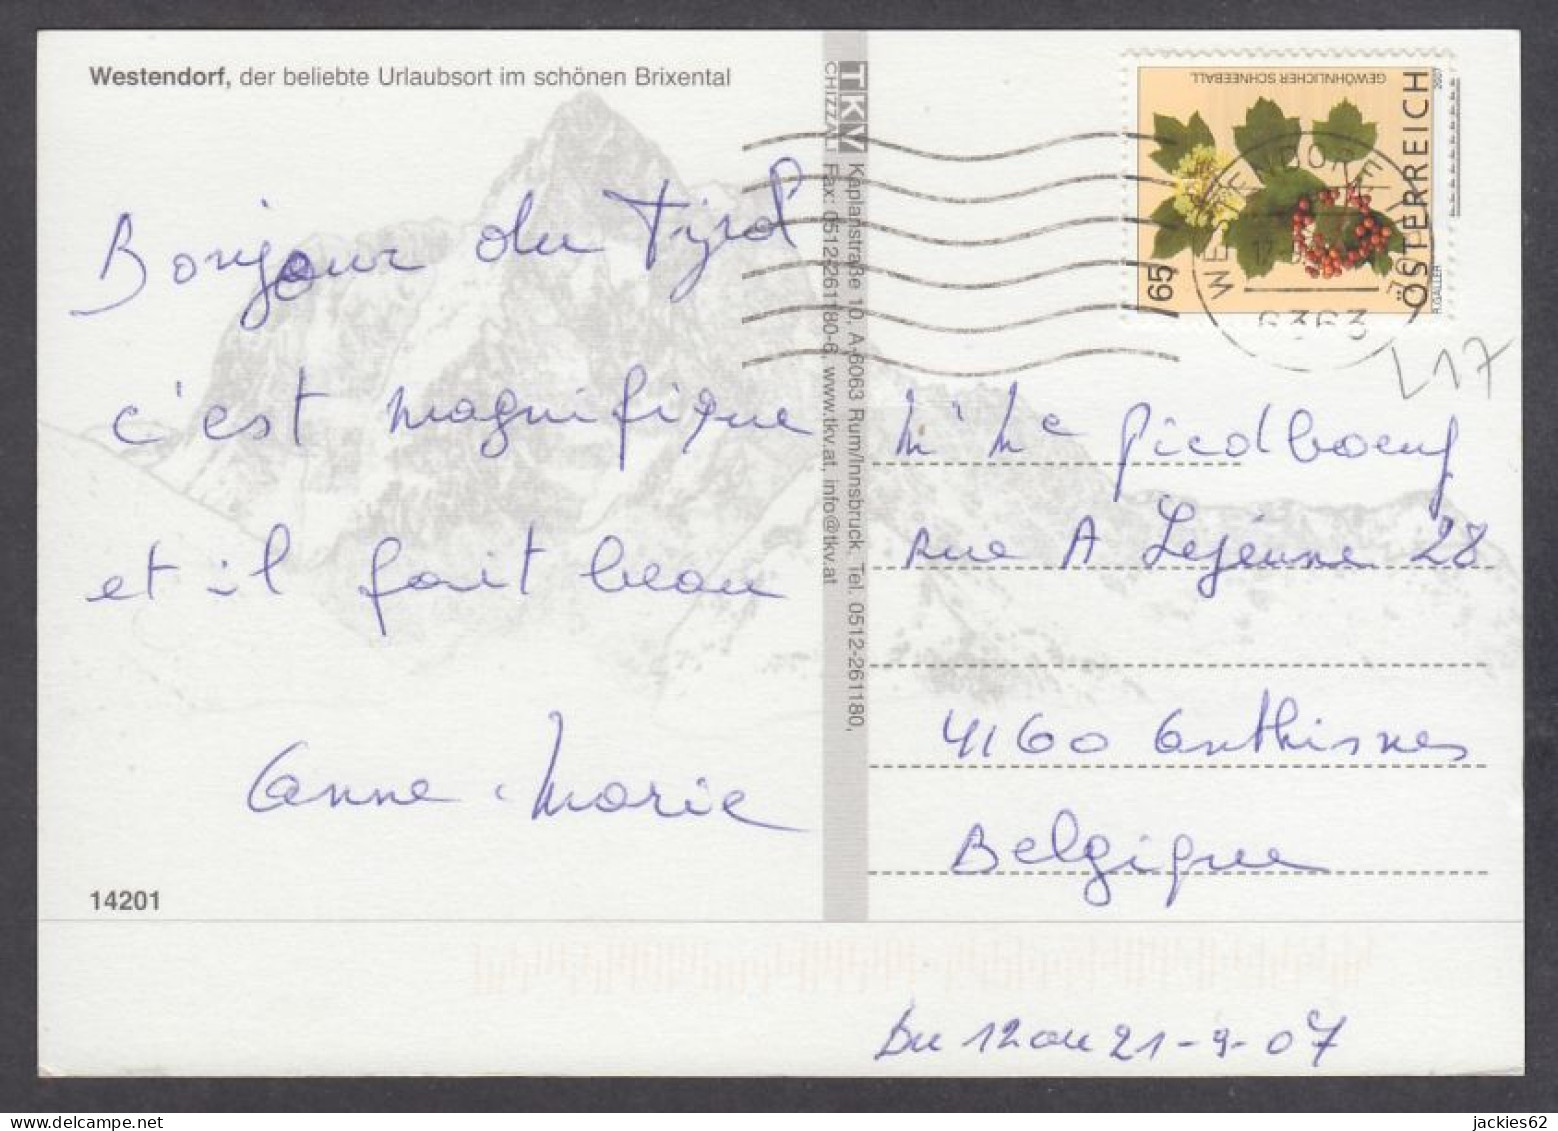 Westendorf, der beliebte Urlaubsort im schönen Brixental
Bonjour du Tyrol
c'est magnifique
et il fait beau
Anne-Marie
14201
TKV
CHIZZALI
Kaplanstraße 10, A-6063 Rum/Innsbruck, Tel. 0512-261180,
Fax: 0512-261180-6, www.tkv.at, info@tkv.at
GEWÖHNLICHER SCHNEEBALL
2007
ÖSTERREICH
R.GALLER
65
6363
L17
Mr Me Piedboeuf
rue A Lejeune 28
4160 Anthisnes
Belgique
Du 12 au 21-9-07
jackies62